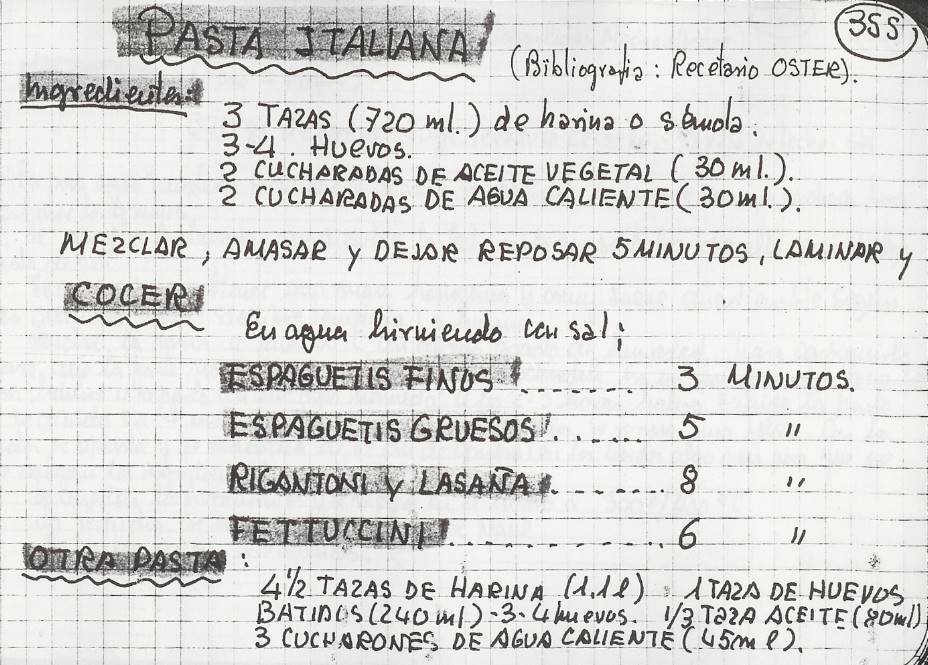 PASTA ITALIANA
355
(Bibliografia: Recetario OSTER).
Ingredientes:
3 TAZAS (720 ml.) de harina o sémola.
3-4. HUevos.
2 CUCHARADAS DE ACEITE VEGETAL (30 ml.).
2 CUCHARADAS DE AGUA CALIENTE (30 ml.).
MEZCLAR, AMASAR y DEJAR REPOSAR 5 MINUTOS, LAMINAR y
COCER:
En agua hirviendo con sal;
ESPAGUETIS FINOS: ....... 3 MINUTOS.
ESPAGUETIS GRUESOS: ...... 5 "
RIGANTONI y LASAÑA: ....... 8 "
FETTUCCINI: ............. 6 "
OTRA PASTA:
4 1/2 TAZAS DE HARINA (1,1 l) 1 TAZA DE HUEVOS
BATIDOS (240 ml) -3-4 huevos. 1/3 TAZA ACEITE (80ml)
3 CUCHARONES DE AGUA CALIENTE (45 ml).